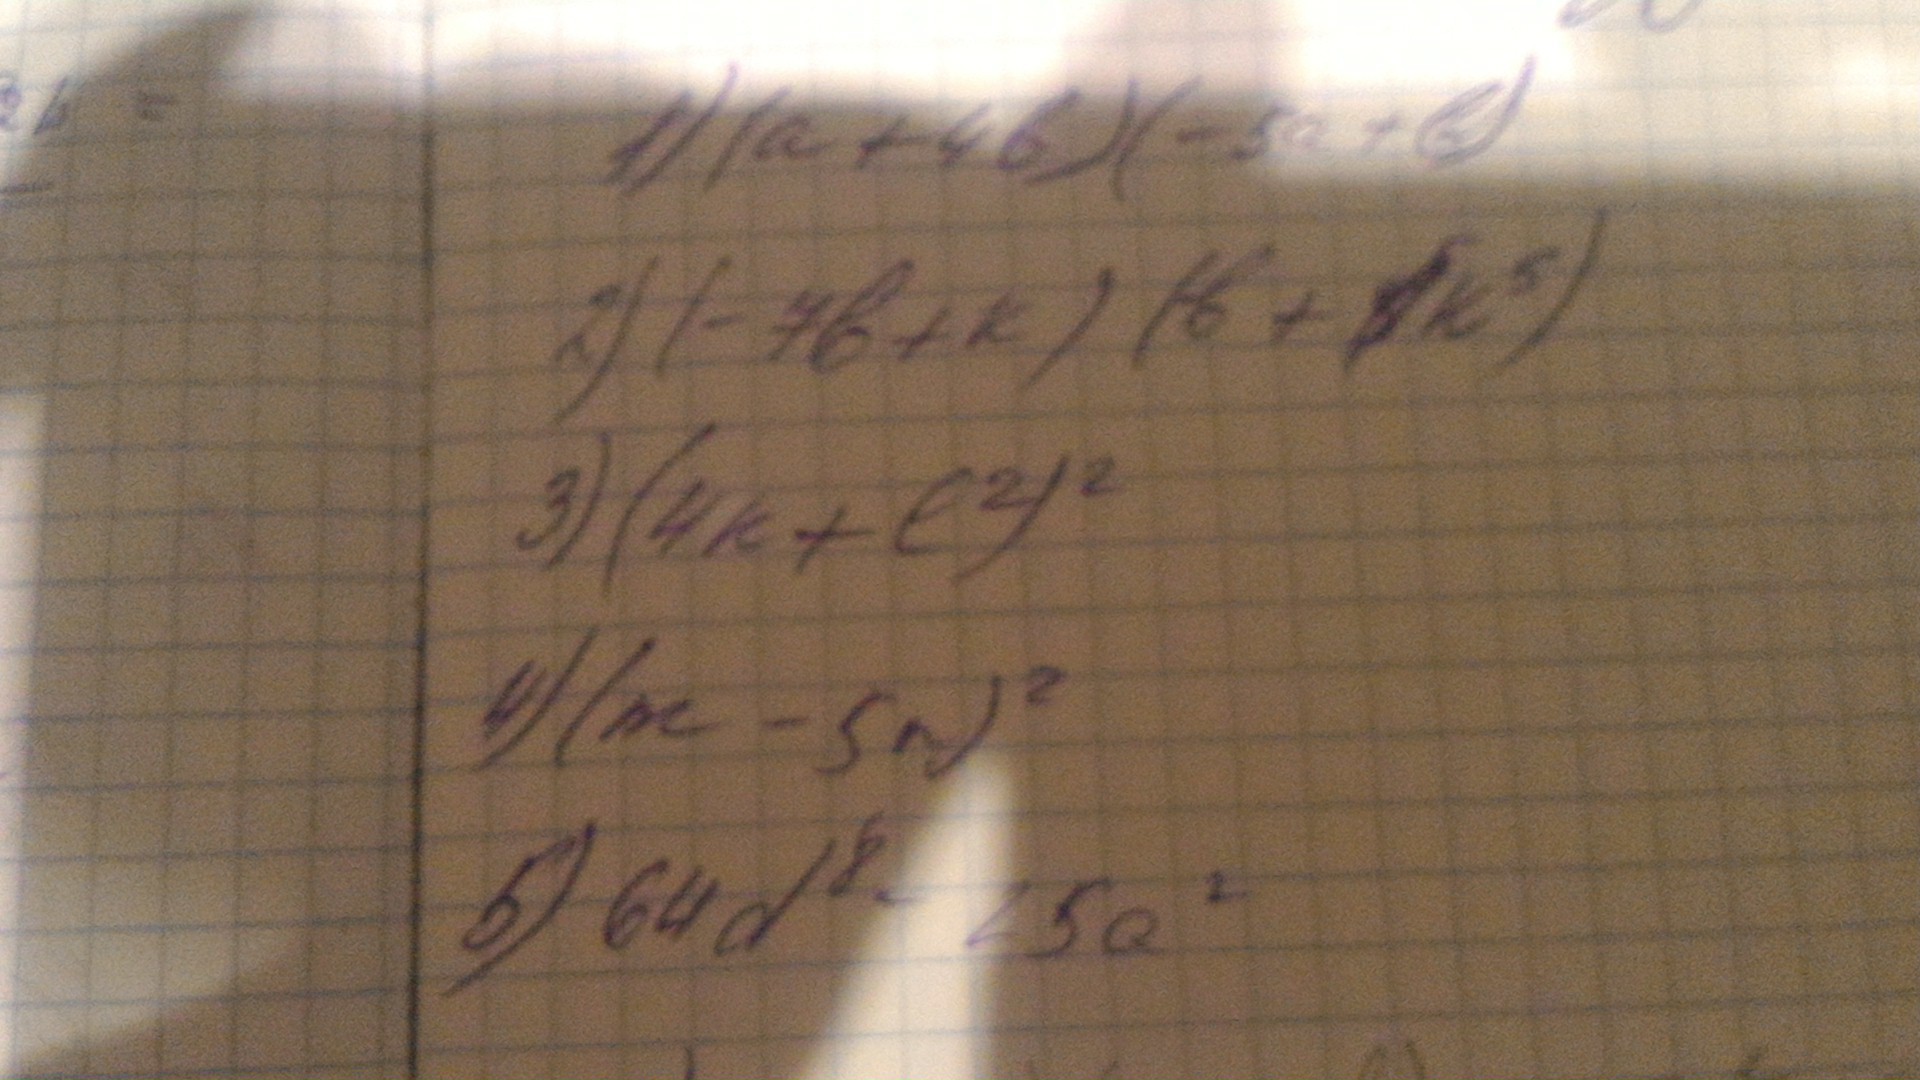 2b =
1) (a + 4b)(-5a + b)
2) (-7b + k) (b + k⁵)
3) (4k + c²)²
4) (m - 5n)²
5) 64d⁸ - 25a²